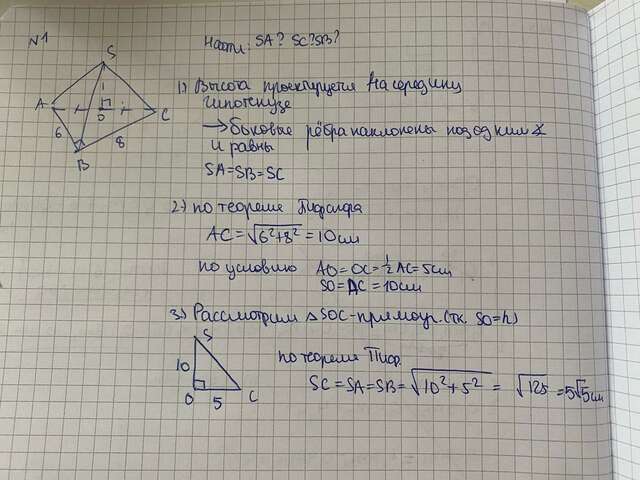 N1
Найти: SA? SC? SB?
S
A
O
C
6
8
B
1) Высота проектируется на середину
гипотенузе
→ боковые рёбра наклонены под одним ∡
и равны
SA=SB=SC
2) по теореме Пифагора
AC = √6²+8² = 10 см
по условию AO = OC = ½ AC = 5см
SO = AC = 10см
3) Рассмотрим △SOC - прямоуг. (т.к. SO=h)
S
10
O 5 C
по теореме Пиф.
SC = SA = SB = √10²+5² = √125 = 5√5 см